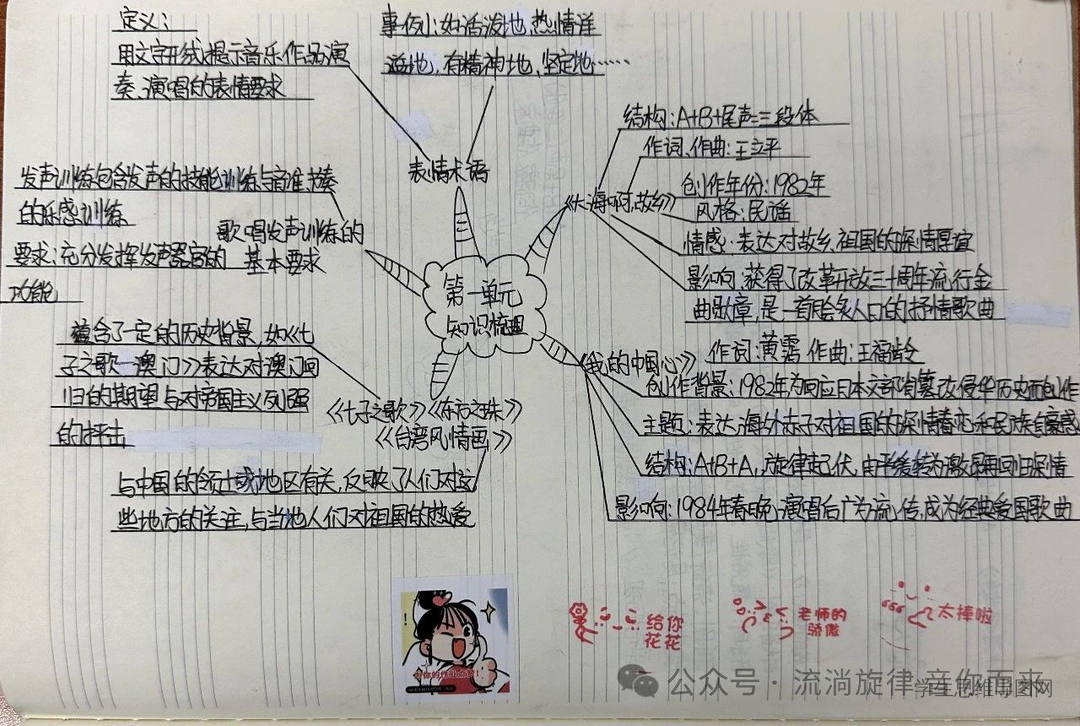 定义：
用文字形式提示音乐作品演
奏、演唱的表情要求
事例：如活泼地、热情洋
溢地、有精神地、坚定地……
表情术语
发声训练包含发声的技能训练与音准、节奏
的乐感训练
要求：充分发挥发声器官的
功能
歌唱发声训练的
基本要求
第一单元
知识梳理
《大海啊，故乡》
结构：A+B+尾声=三段体
作词、作曲：王立平
创作年份：1982年
风格：民谣
情感：表达对故乡、祖国的深情厚谊
影响：获得了改革开放三十周年流行金
曲勋章，是一首脍炙人口的抒情歌曲
《我的中国心》
作词：黄霑 作曲：王福龄
创作背景：1982年为回应日本文部省篡改侵华历史而创作
主题：表达海外赤子对祖国的深情眷恋和民族自豪感
结构：A+B+A，旋律起伏，由平缓转为激昂再回归深情
影响：1984年春晚演唱后广为流传，成为经典爱国歌曲
蕴含了一定的历史背景，如《七
子之歌—澳门》表达对澳门回
归的期望与对帝国主义列强
的抨击
《七子之歌》《东方之珠》
《台湾风情画》
与中国的领土或地区有关，反映了人们对这
些地方的关注，与当地人们对祖国的热爱
给你
花花
老师的
骄傲
太棒啦
公众号·流淌旋律 音你而来
学生思维导图网